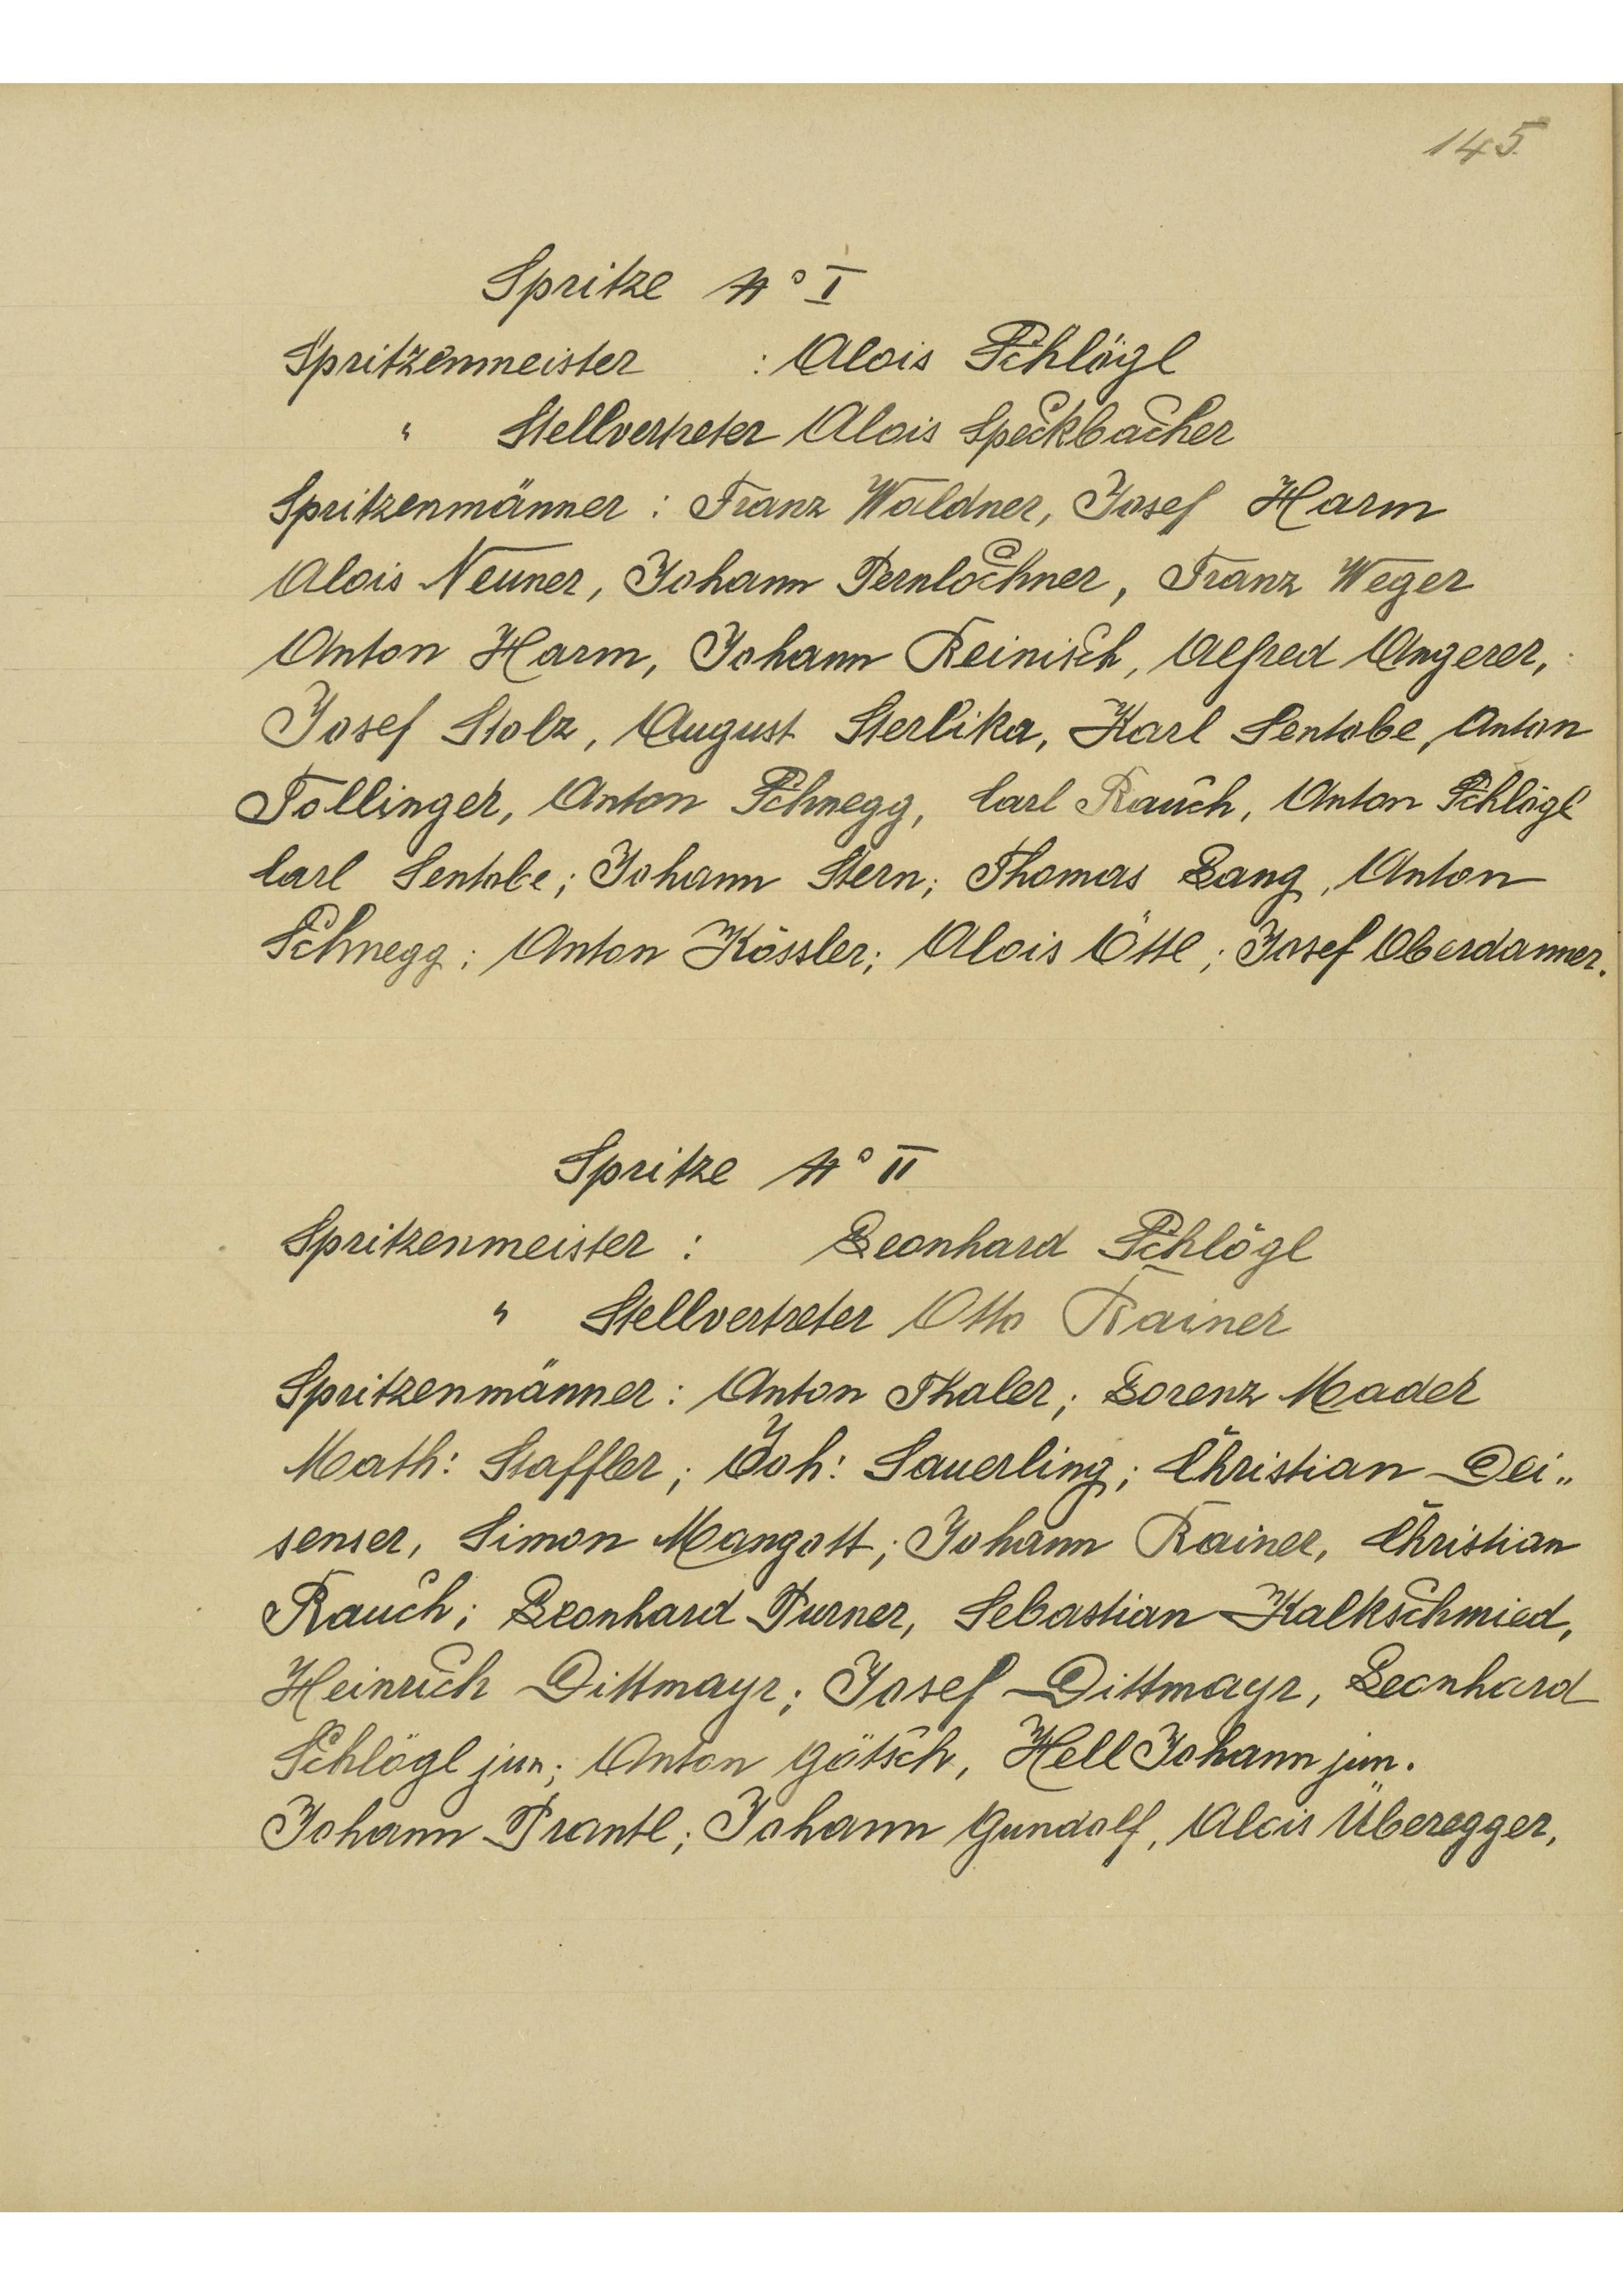 145.
Spritze No I
Spritzenmeister : Alois Schlögl
" Stellvertreter Alois Speckbacher
Spritzenmänner : Franz Waldner, Josef Harm
Alois Neuner, Johann Pernlochner, Franz Weger
Anton Harm, Johann Reinisch, Alfred Angerer,
Josef Stolz, August Sterlika, Karl Sentobe, Anton
Tollinger, Anton Schnegg, Carl Rauch, Anton Schlögl
Carl Sentobe; Johann Stern; Thomas Lang, Anton
Schnegg; Anton Kössler; Alois Öttl; Josef Oberdanner.
Spritze No II
Spritzenmeister : Leonhard Schlögl
" Stellvertreter Otto Rainer
Spritzenmänner: Anton Thaler; Lorenz Mader
Math: Staffler; Joh: Sauerling; Christian Dei„
senser, Simon Mangott; Johann Rainer, Christian
Rauch; Leonhard Purner, Sebastian Kalkschmied,
Heinrich Dittmayr; Josef Dittmayr, Leonhard
Schlögl jun; Anton Götsch, Hell Johann jun.
Johann Prantl; Johann Gundolf, Alois Überegger,